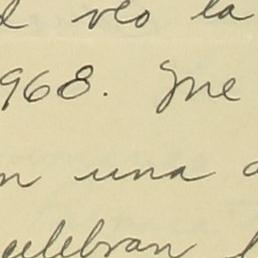 veo la
968. Me
n una
celebran